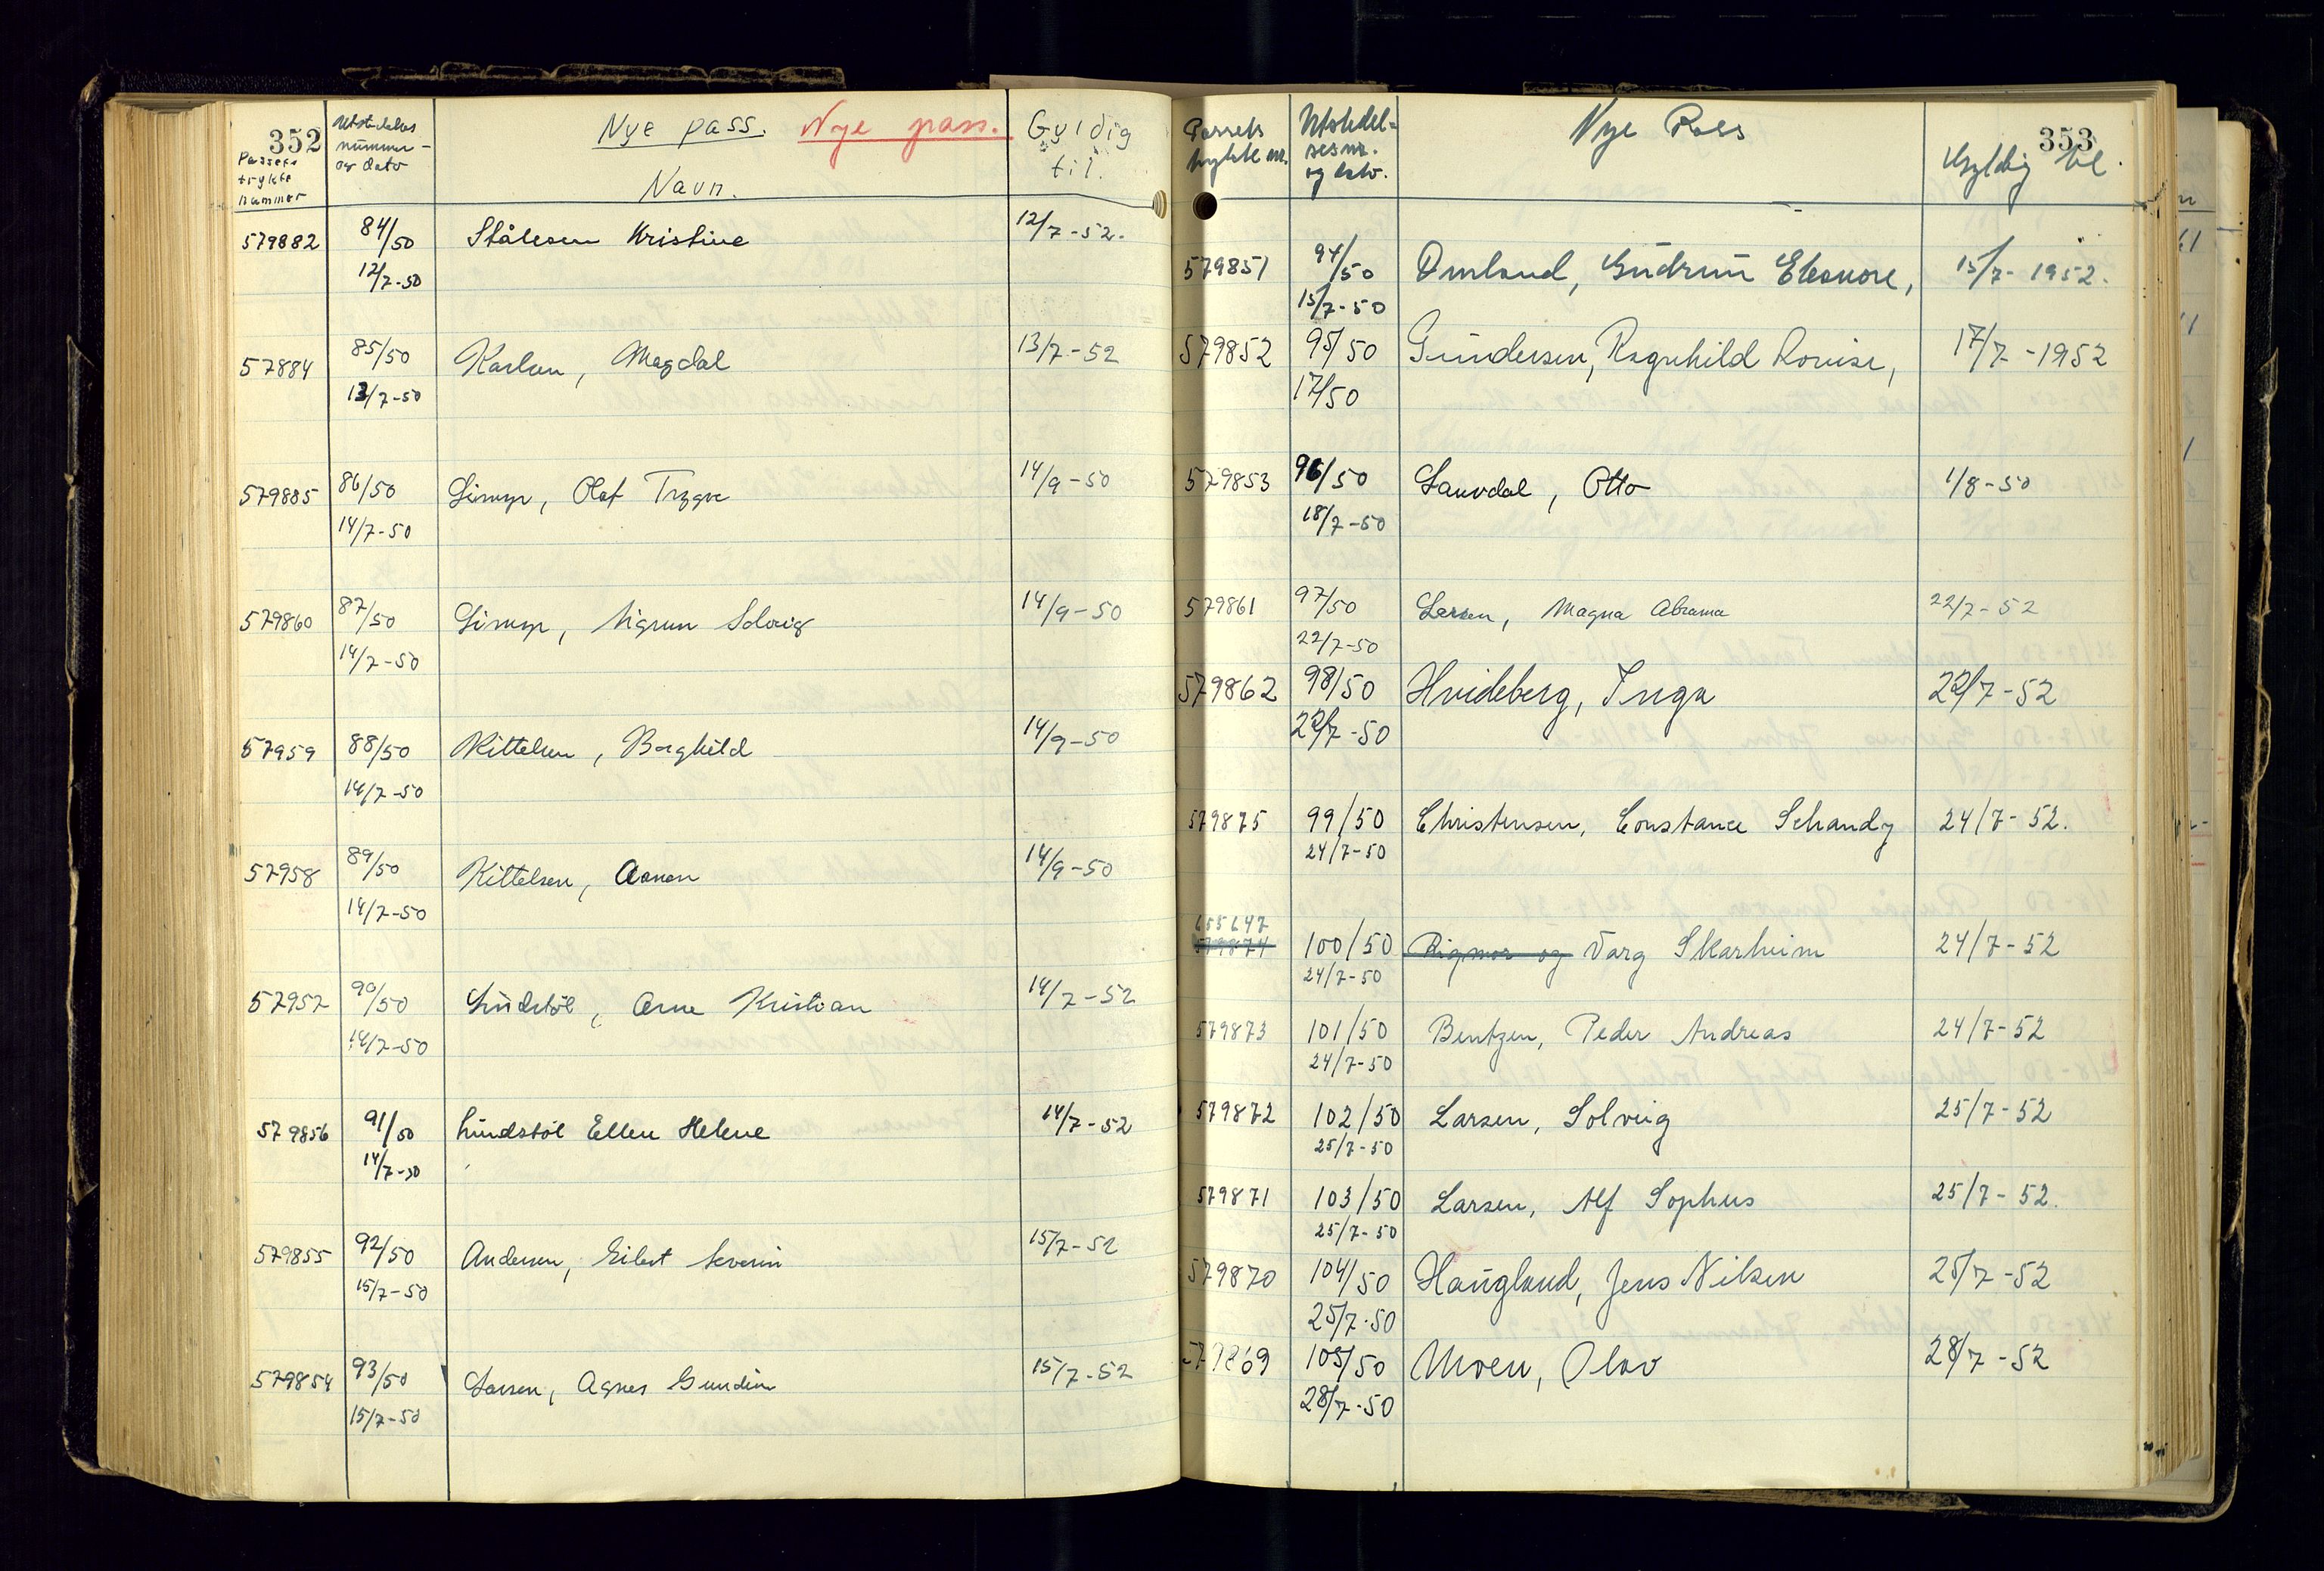 352
Passets
trykte
nummer
Utstedelses
nummer -
og dato
Nye pass. Nye pass.
Navn.
Gyldig
til.
579882 84/50 Stålesen Kristine 12/7-52.
12/7-50
57884 85/50 Karlsen, Magdal 13/7-52
13/7-50
579885 86/50 Limyr, Olaf Trygve 14/9-50
14/7-50
579860 87/50 Limyr, Sigrun Solveig 14/9-50
14/7-50
57959 88/50 Kittelsen, Borghild 14/9-50
14/7-50
57958 89/50 Kittelsen, Aanen 14/9-50
14/7-50
57957 90/50 Lindstøl, Arne Kristian 14/7-52
14/7-50
579856 91/50 Lindstøl Ellen Helene 14/7-52
14/7-50
579855 92/50 Andersen, Eilert Severin 15/7-52
15/7-50
579854 93/50 Larsen, Agnes Gundine 15/7-52
15/7-50
353
Passets
trykte nr.
Utstedel-
sesnr.
og dato.
Nye Pass
Gyldig til.
579851 94/50 Omland, Gudrun Eleonore, 15/7-1952.
15/7-50
579852 95/50 Gundersen, Ragnhild Lovise, 17/7-1952
17/50
579853 96/50 Lauvdal, Otto 1/8-50
18/7-50
579861 97/50 Larsen, Magna Abrama 22/7-52
22/7-50
579862 98/50 Hvideberg, Inga 22/7-52
22/7-50
579875 99/50 Christensen, Constance Schandy 24/7-52.
24/7-50
655647
579874 100/50 Rigmor og Varg Skarheim 24/7-52
24/7-50
579873 101/50 Bentzen, Peder Andreas 24/7-52
24/7-50
579872 102/50 Larsen, Solveig 25/7-52
25/7-50
579871 103/50 Larsen, Alf Sophus 25/7-52.
25/7-50
579870 104/50 Haugland, Jens Nilsen 25/7-52
25/7-50
579869 105/50 Moen, Olav 28/7-52
28/7-50